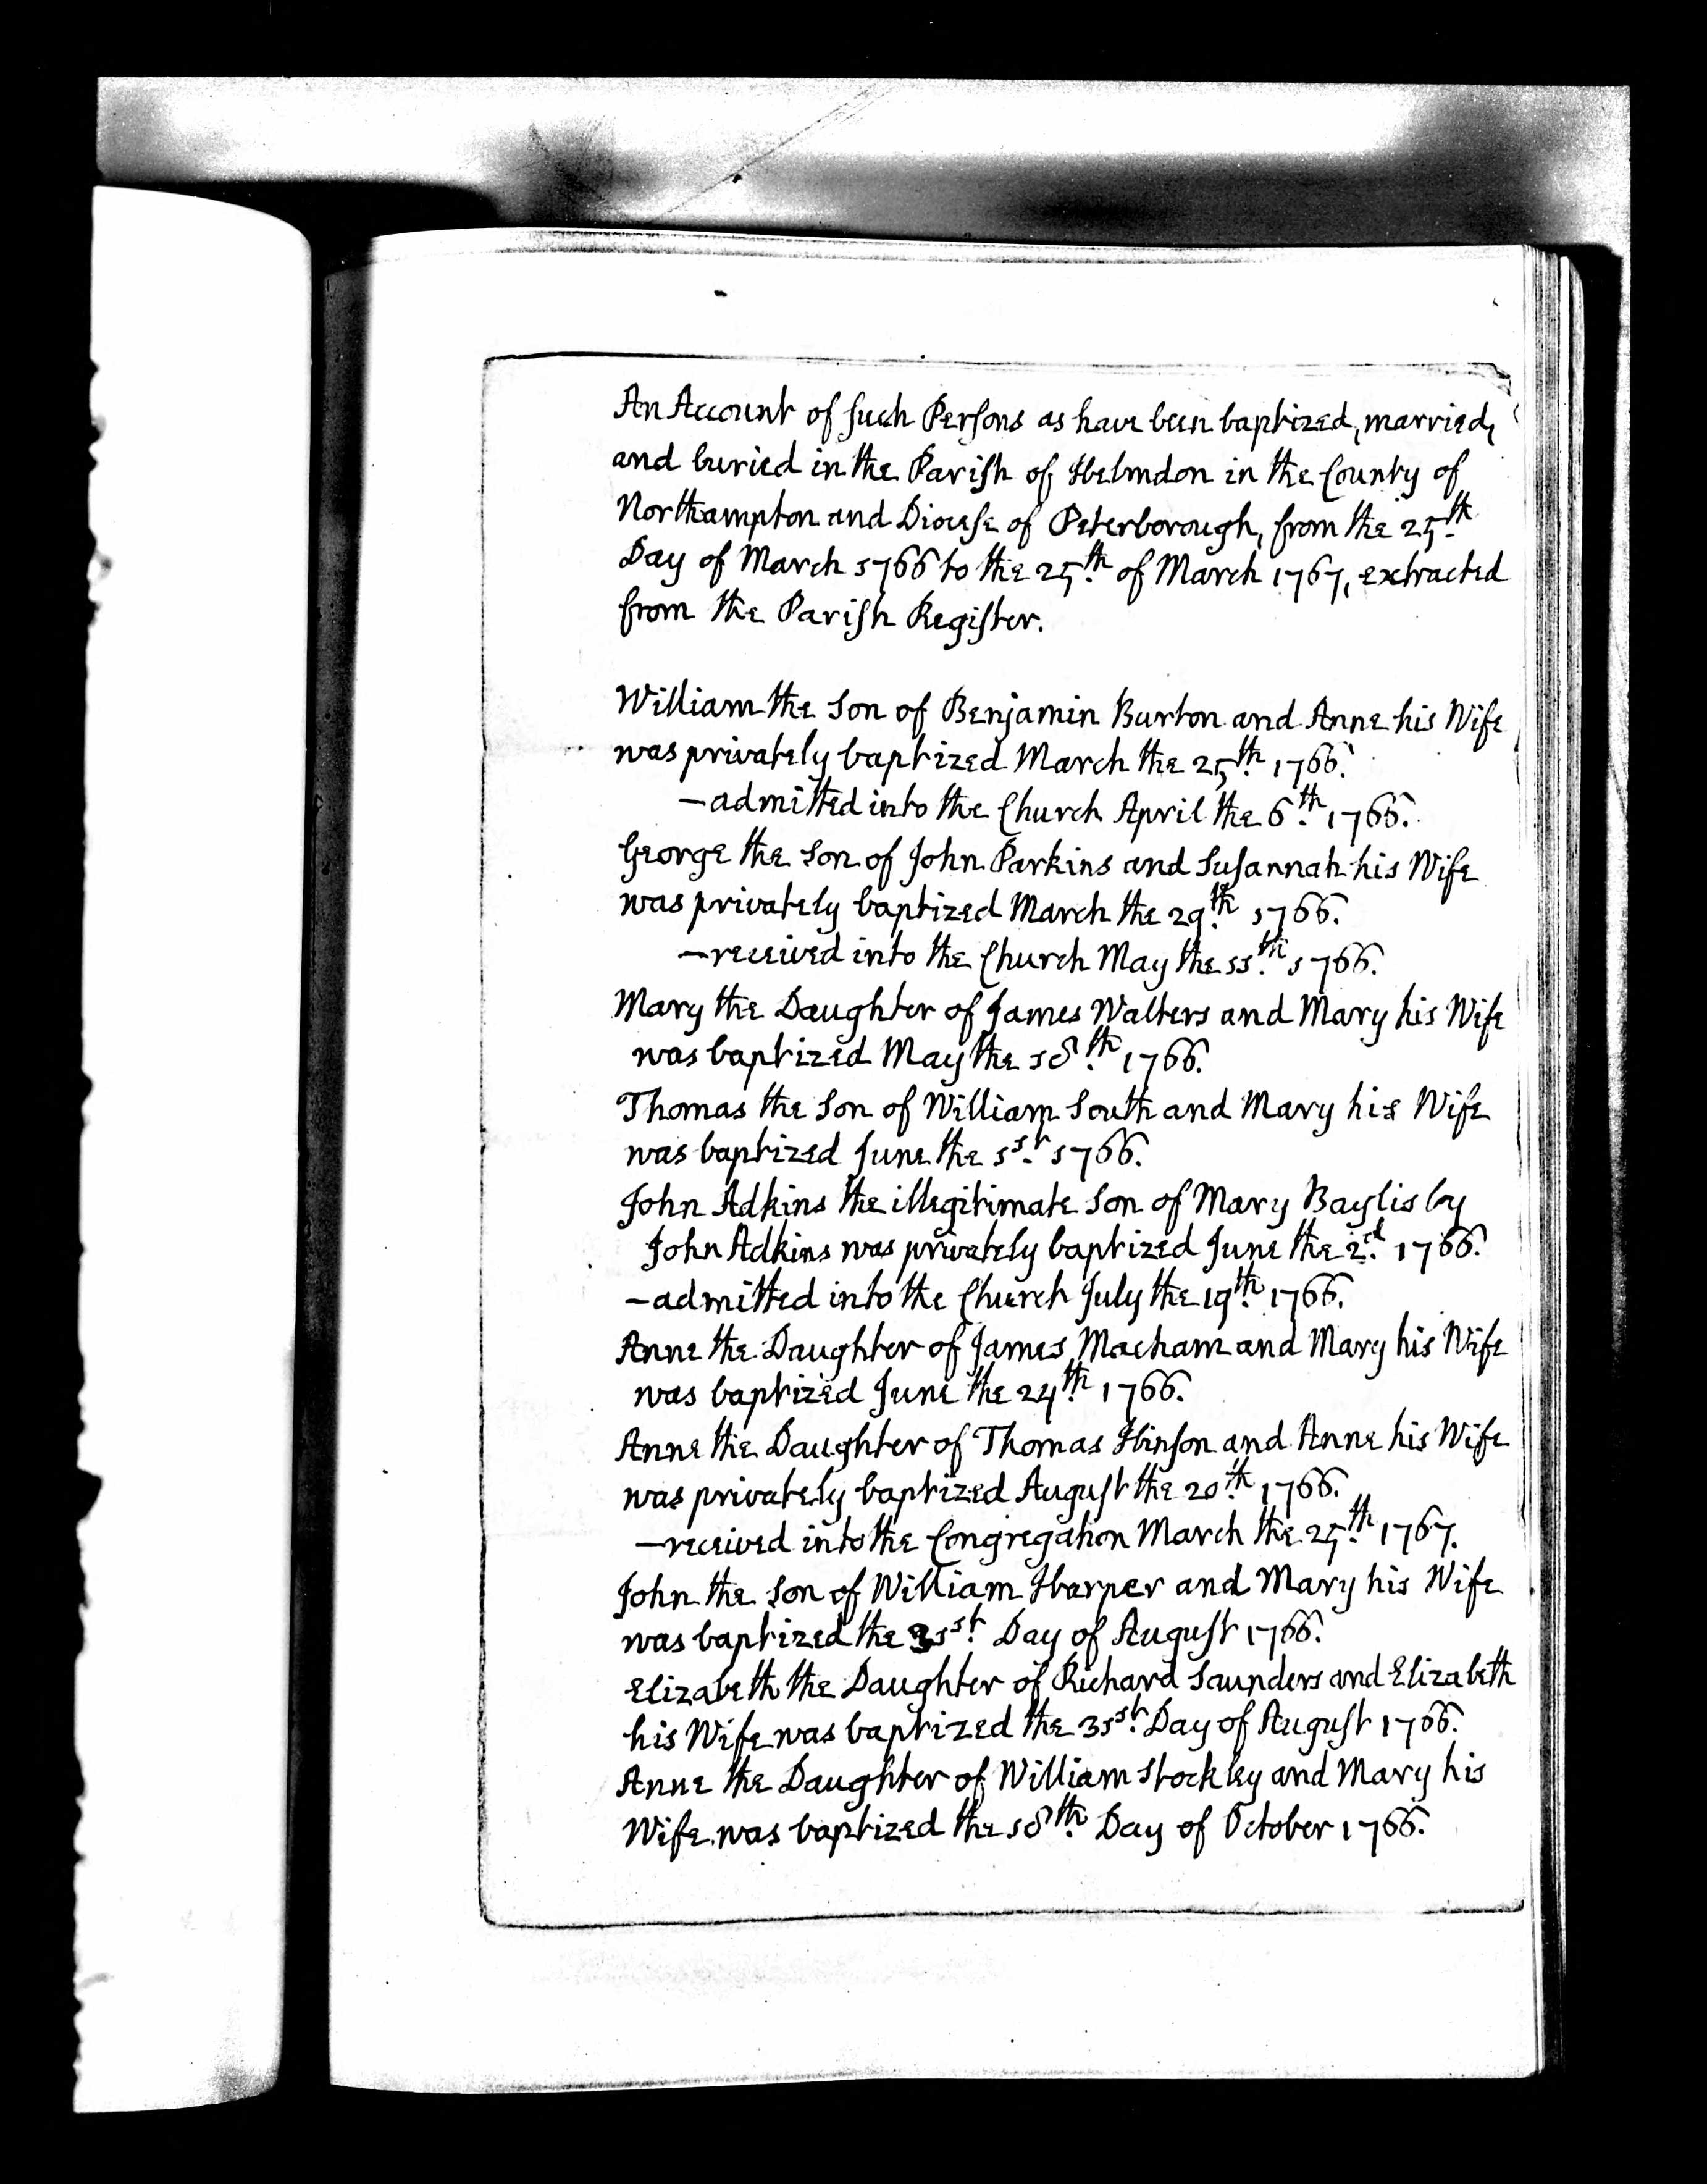 An Account of such Persons as have been baptized, married,
and buried in the Parish of Helmdon in the County of
Northampton and Diocese of Peterborough, from the 25th
Day of March 1766 to the 25th of March 1767, extracted
from the Parish Register.
William the Son of Benjamin Burton and Anne his Wife
was privately baptized March the 25th 1766.
—admitted into the Church April the 6th 1766.
George the Son of John Parkins and Susannah his Wife
was privately baptized March the 29th 1766.
—received into the Church May the 11th 1766.
Mary the Daughter of James Walters and Mary his Wife
was baptized May the 18th 1766.
Thomas the Son of William South and Mary his Wife
was baptized June the 1st 1766.
John Adkins the illegitimate Son of Mary Baylis by
John Adkins was privately baptized June the 2d 1766.
—admitted into the Church July the 19th 1766.
Anne the Daughter of James Macham and Mary his Wife
was baptized June the 24th 1766.
Anne the Daughter of Thomas Hinson and Anne his Wife
was privately baptized August the 20th 1766.
—received into the Congregation March the 25th 1767.
John the Son of William Harper and Mary his Wife
was baptized the 31st Day of August 1766.
Elizabeth the Daughter of Richard Saunders and Elizabeth
his Wife was baptized the 31st Day of August 1766.
Anne the Daughter of William Stockley and Mary his
Wife was baptized the 18th Day of October 1766.